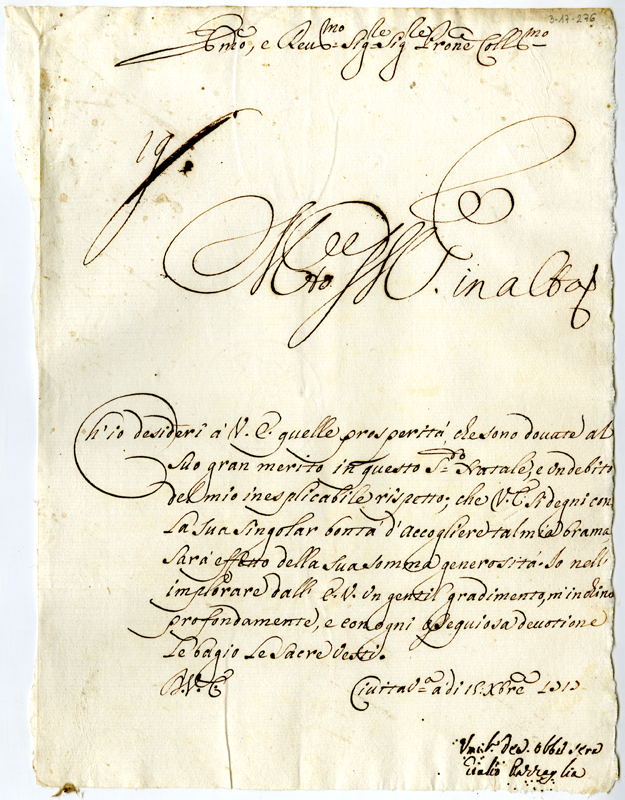 3-17-276
Em̃o, e Reu.mo Sig.re Sig.re Prone Coll.mo
19
in alto
Ch'io desideri à V. E. quelle prosperità, che sono douute al
Suo gran merito in questo S.do Natale, e un debito
del mio inesplicabile rispetto; che V. E. si degni con
La Sua Singolar bontà d'accogliere tal mia brama
Sarà effetto della Sua Somma generosità. Io nell'
implorare dall' E. V. un gentil gradimento, m'inchino
profondamente, e con ogni ossequiosa deuotione
Le bagio Le Sacre Vesti.
D. V. E. Ciuitau.a a di 15. Xbre
Vmil.o deu. obbl ser.e